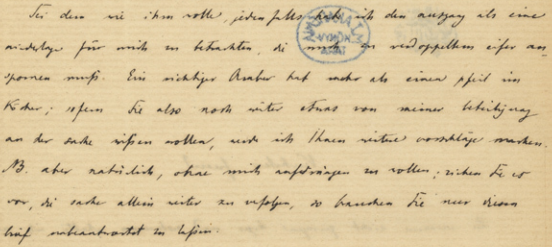 Sei dem wie ihm wolle, jedenfalls habe ich den ausgang als eine
niederlage für mich zu betrachten, die mich zu verdoppeltem eifer an-
spornen muß. Ein richtiger Araber hat mehr als einen pfeil im
Köcher; sofern Sie also noch weiter etwas von meiner beteiligung
an der sache wissen wollen, werde ich Ihnen weitere vorschläge machen.
NB. aber natürlich, ohne mich aufdrängen zu wollen; ziehen Sie es
vor, die sache allein weiter zu verfolgen, so brauchen Sie nur diesen
brief unbeantwortet zu lassen.